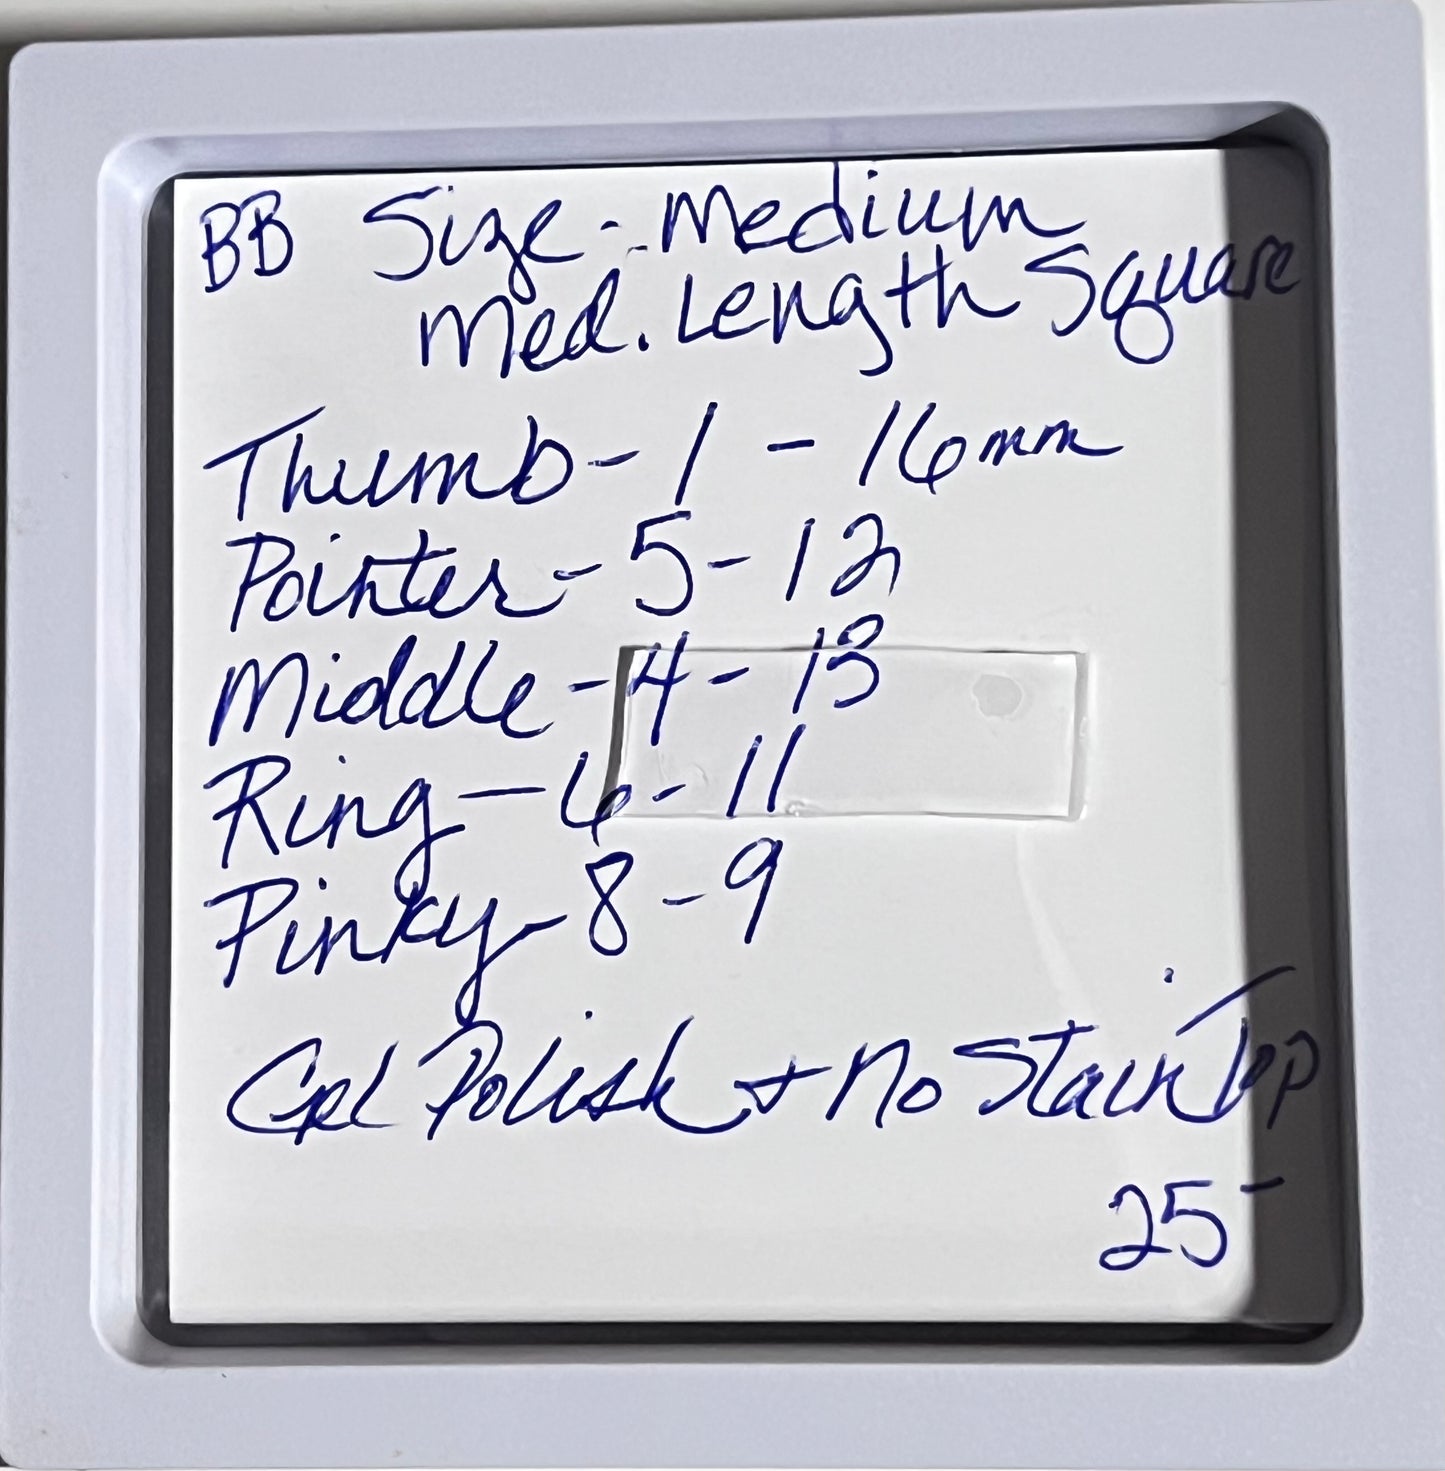 BB Size - Medium
Med. Length Square
Thumb - 1 - 16mm
Pointer - 5 - 12
Middle - 4 - 13
Ring - 6 - 11
Pinky - 8 - 9
Gel Polish + No Stain Top
25-